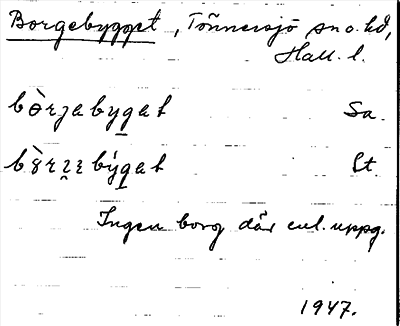 Borgebygget, Tönnersjö sn o. hd,
Hall. l.
bòrjabygat Sa.
St.
Ingen borg där enl. uppg.
1947.